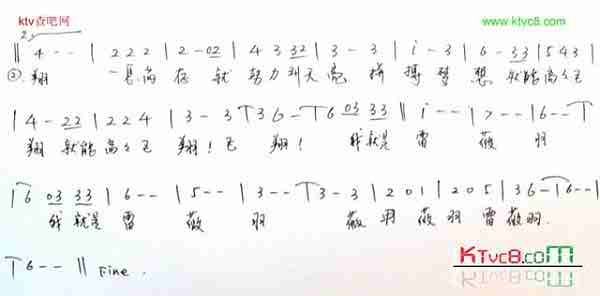 ktv查吧网
www.ktvc8.com
2.
‖ 4 - - | 2 2 2 | 2 - 02 | 4 3 32 | 3 - 3 | i - 3 | 6 - 33 | 5 4 3 |
②. 翔 一息尚存就努力到天亮 拼搏梦想 就能高高飞
| 4 - 22 | 2 2 4 | 3 - 3 | 3 6 - | 6 03 33 ‖ i - - | 7 - - | 6 - - |
翔 就能高高飞 翔！飞 翔！ 我就是 雷 薇 羽
| 6 03 33 | 6 - - | 5 - - | 3 - - | 3 - 3 | 2 0 1 | 2 0 5 | 3 6 - | 6 - - |
我 就是 雷 薇 羽 薇羽 薇羽 雷薇羽.
| 6 - - ‖ Fine.
KTvc8.com